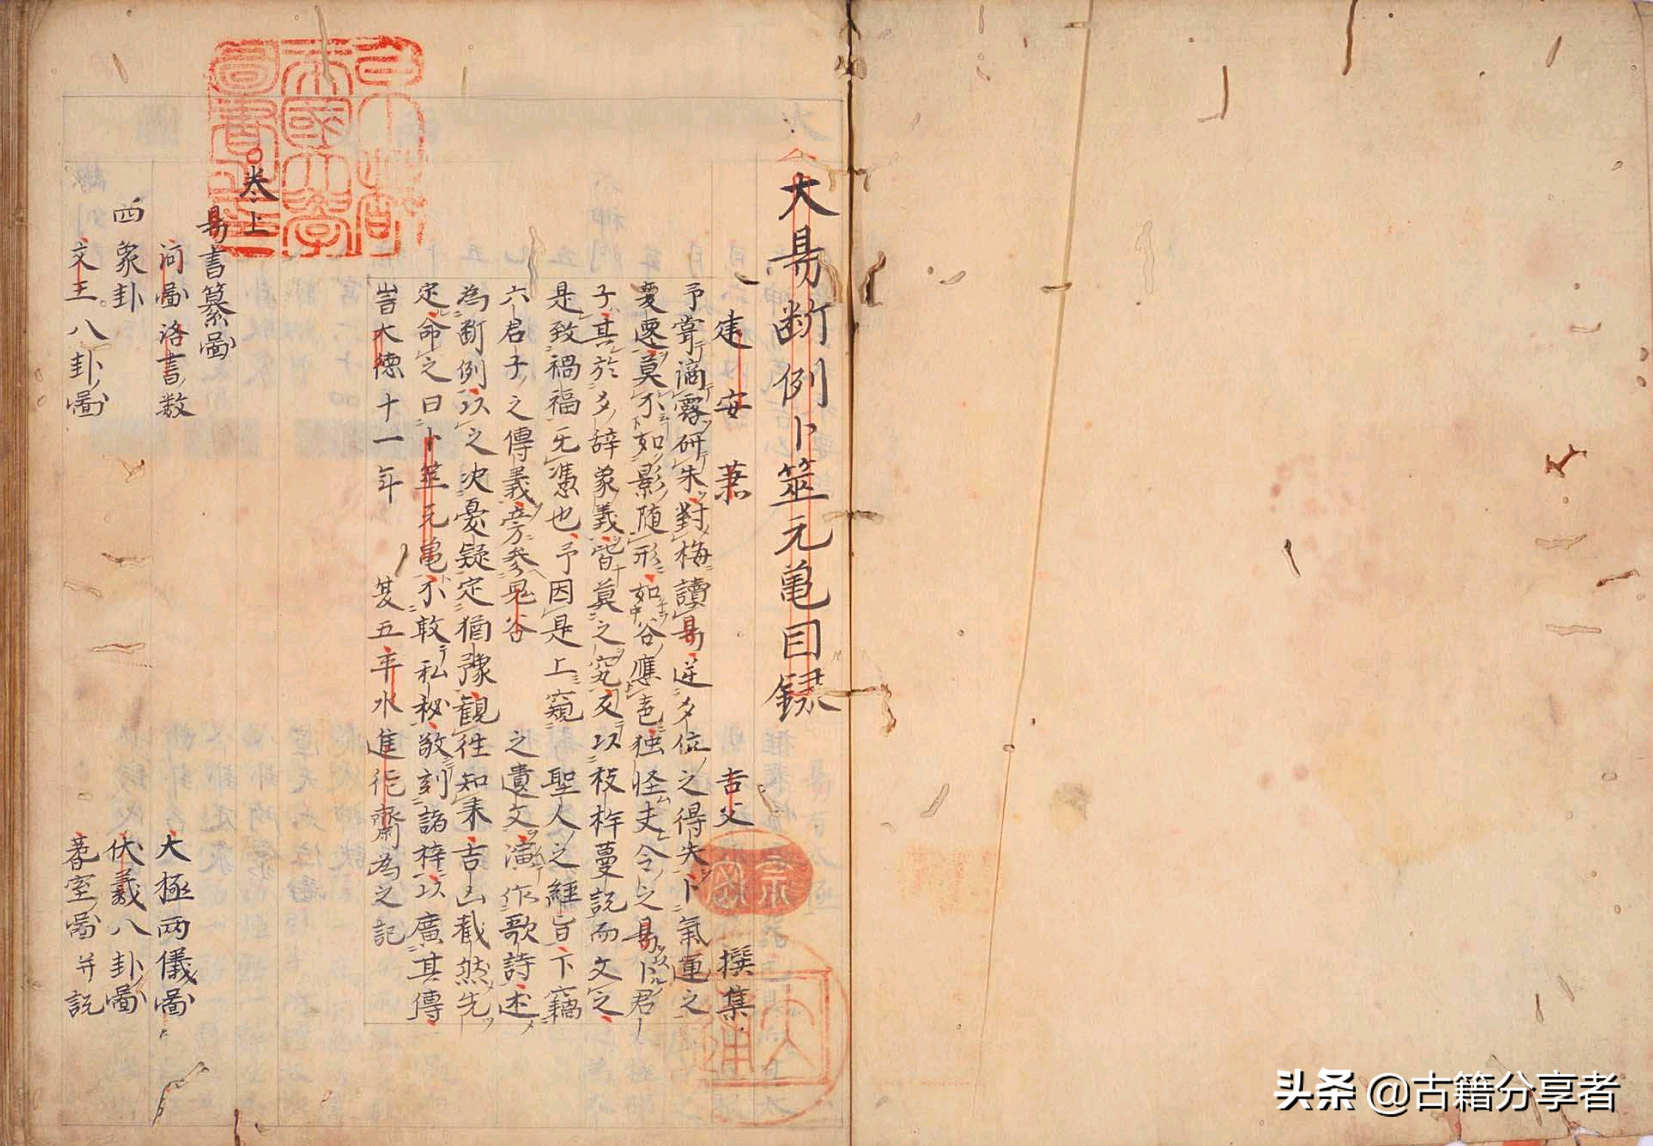 大易断例卜筮元亀目録
建安 蕭 吉父 撰集
予嘗滴露研朱對梅讀易逆夕位之得失卜氣運之
憂虞莫不如影随形如谷應声独怪夫今之易卜君
子其於夕辞象義皆莫之究及以枝梓蔓説而文之
是致禍福无憑也予因是上窺聖人之經旨下竊
六君子之傳義旁参鬼谷之遺文演作歌詩述
為断例以之决憂疑定猶豫観往知来吉凶截然先
定命之曰卜筮元亀不敢私秘敬刻諸梓以廣其傳
旹大德十一年 五 水進 齋為之記
卷上
易書纂圖
河圖洛書数 大極两儀圖
四象卦 伏羲八卦圖
文王八卦圖 蓍室圖并説
頭条 @古籍分享者